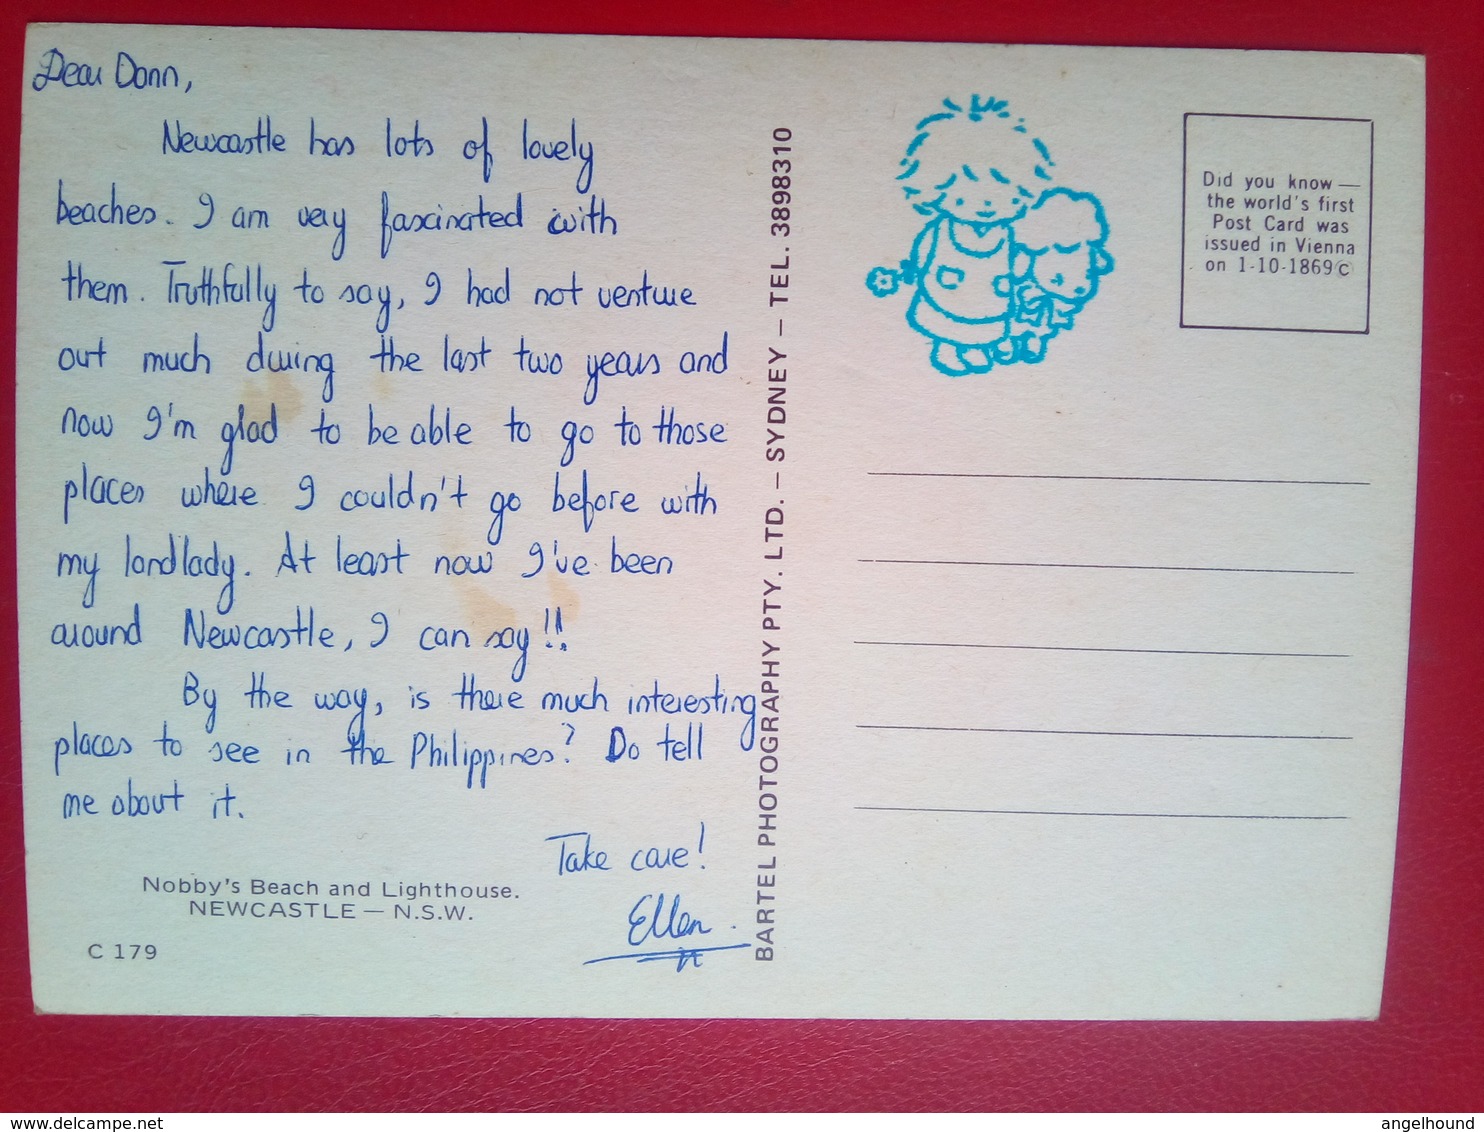 Dear Donn,
Newcastle has lots of lovely
beaches. I am very fascinated with
them. Truthfully to say, I had not venture
out much during the last two years and
now I'm glad to be able to go to those
places where I couldn't go before with
my landlady. At least now I've been
around Newcastle, I can say!!
By the way, is there much interesting
places to see in the Philippines? Do tell
me about it.
Take care!
Ellen.
Nobby's Beach and Lighthouse.
NEWCASTLE — N.S.W.
C 179
BARTEL PHOTOGRAPHY PTY. LTD. — SYDNEY — TEL. 3898310
Did you know —
the world's first
Post Card was
issued in Vienna
on 1-10-1869 ©
www.delcampe.net
angelhound